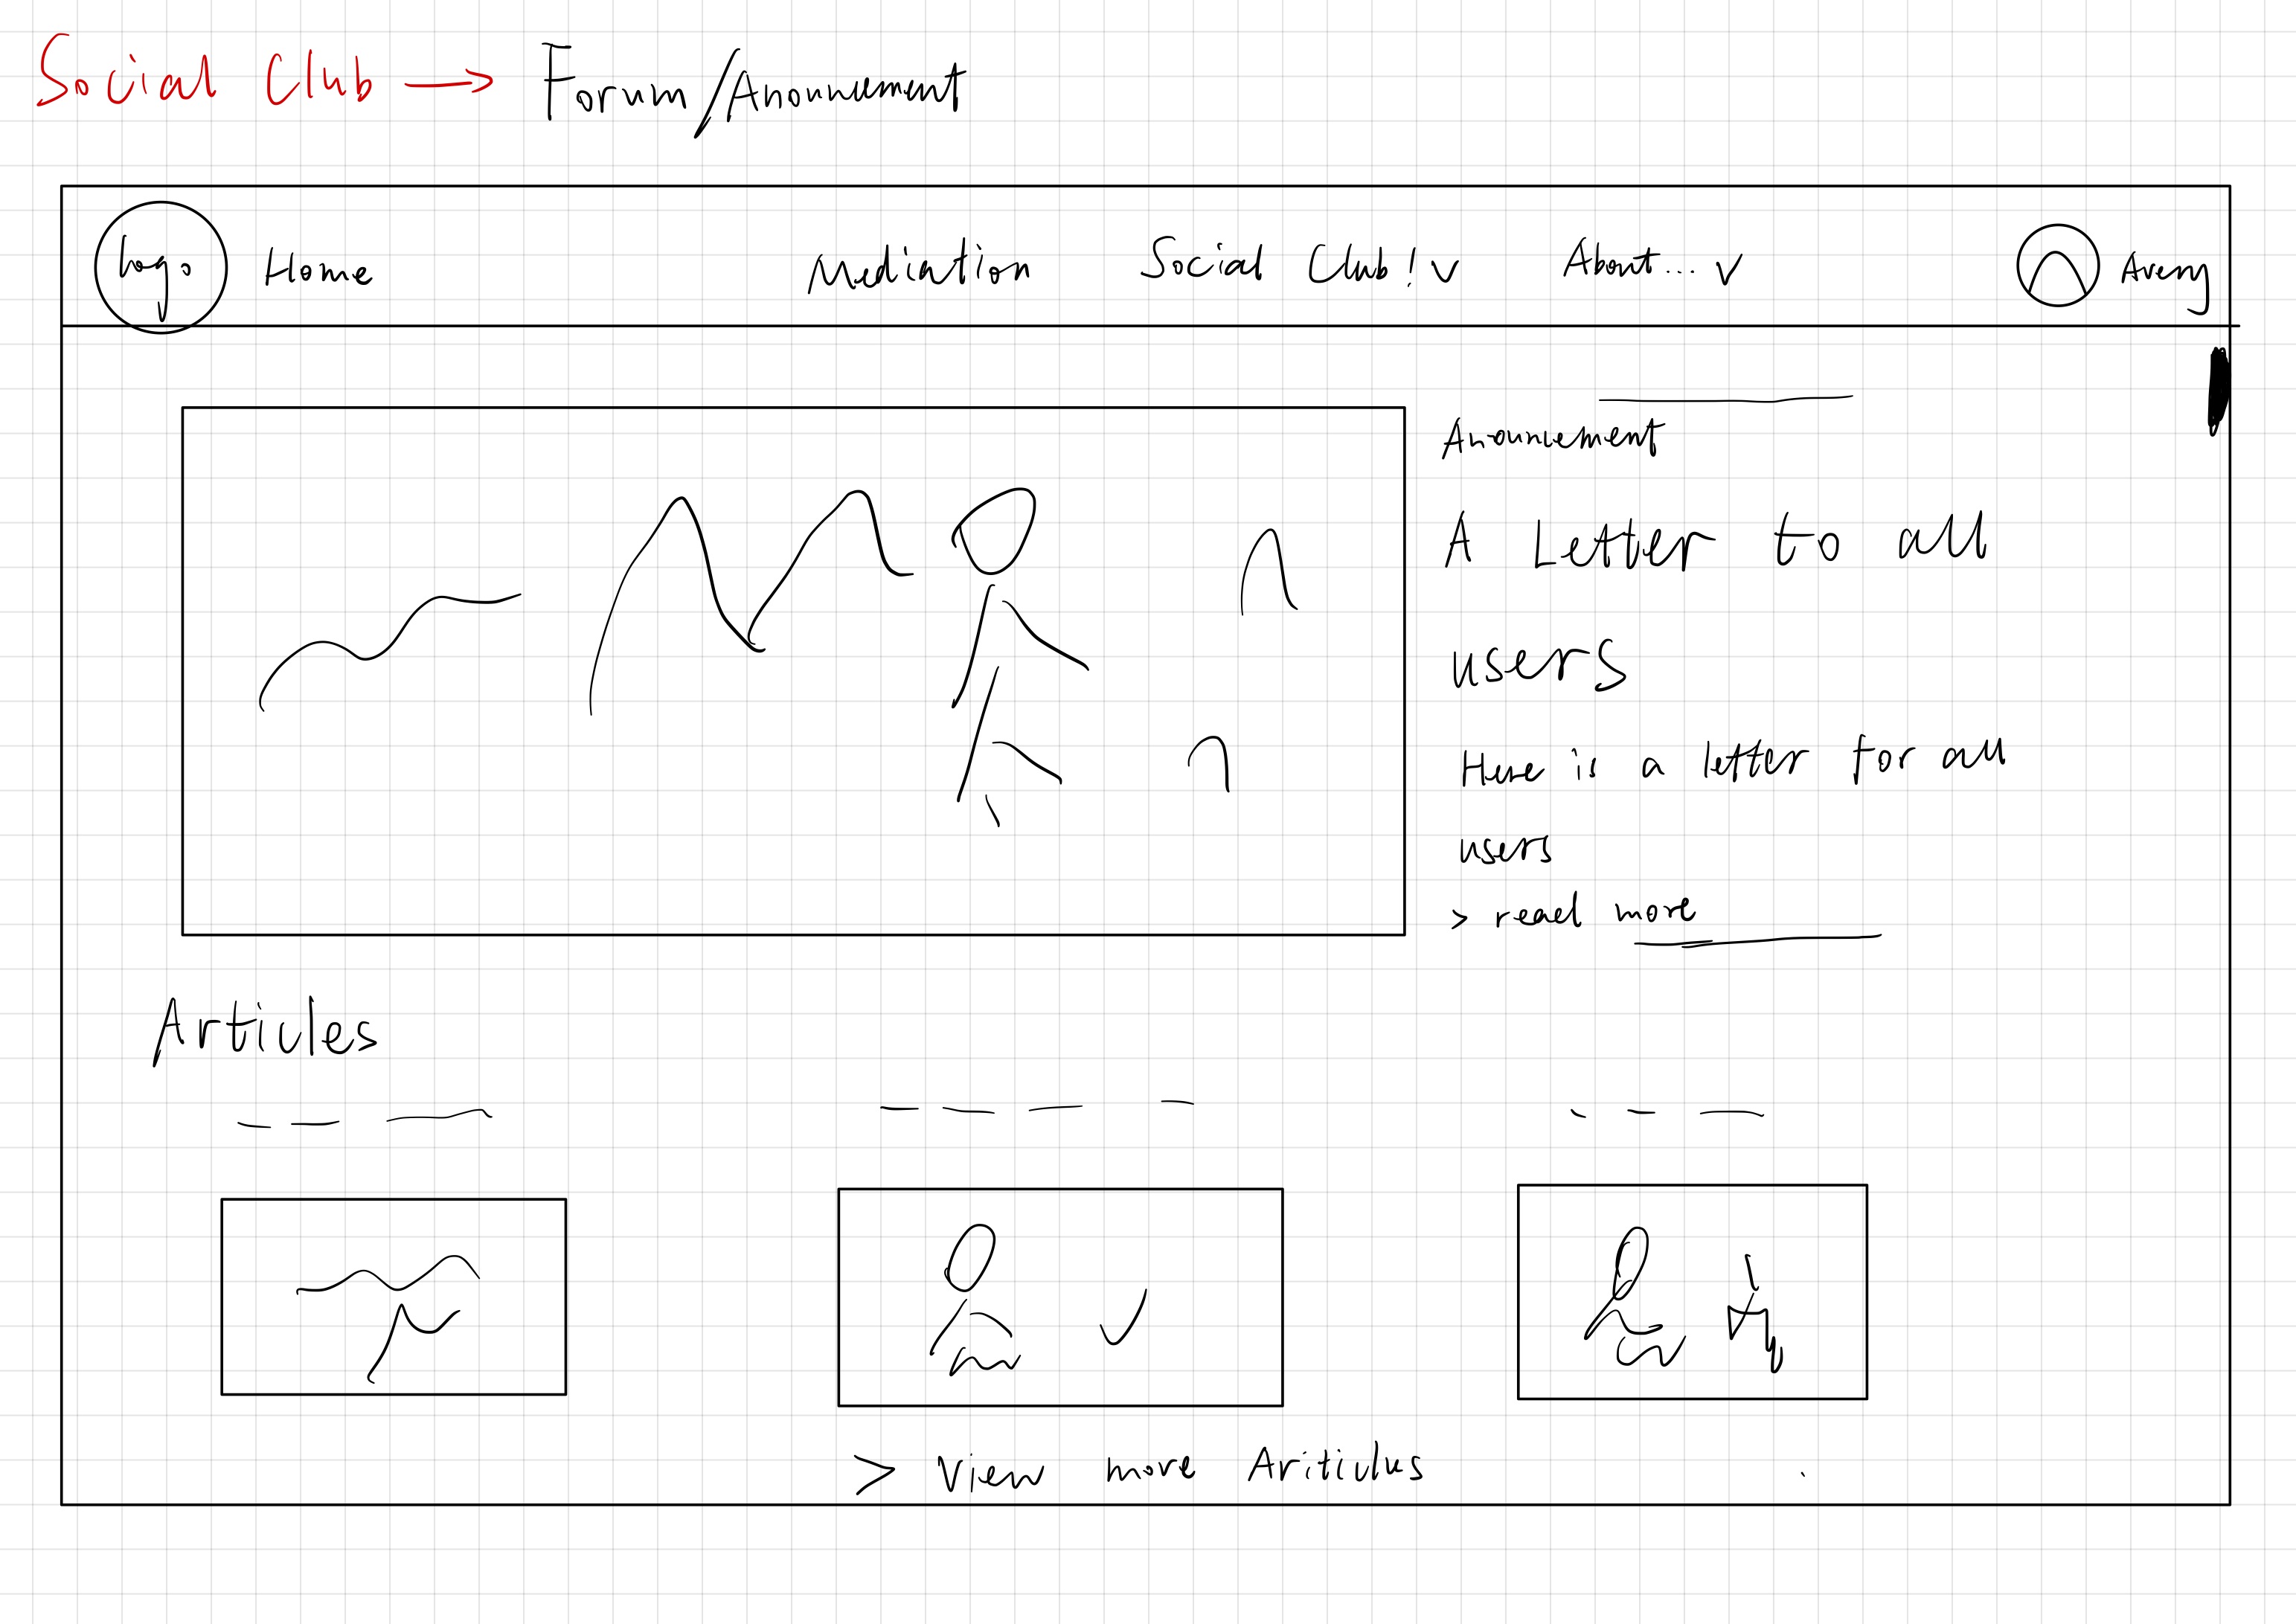 Social Club → Forum/Anounement
logo Home Mediation Social Club! ∨ About... ∨ Avery
Anouncement
A Letter to all
users
Here is a letter for all
users
> read more
Articles
> View more Ariticles